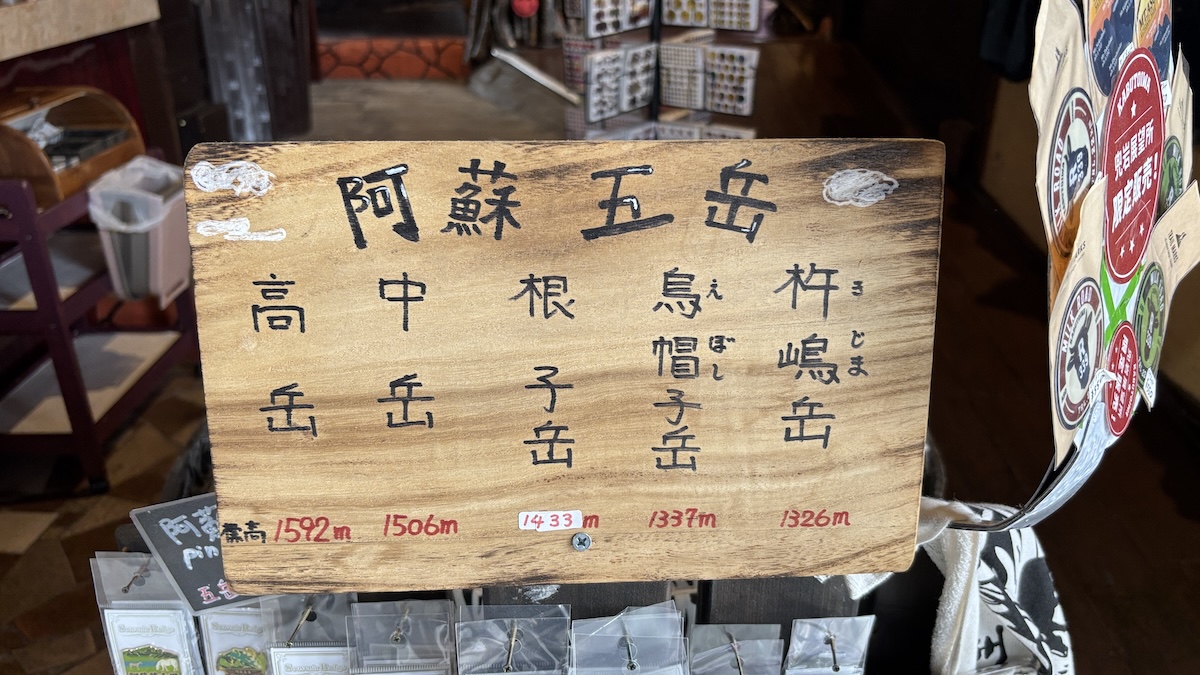 阿蘇五岳
杵嶋岳
きじま
烏帽子岳
えぼし
根子岳
中岳
高岳
標高 1592m 1506m 1433m 1337m 1326m
阿蘇
pin
五岳
KABUTOIWA
兜岩展望所
限定販売!
MILK ROAD